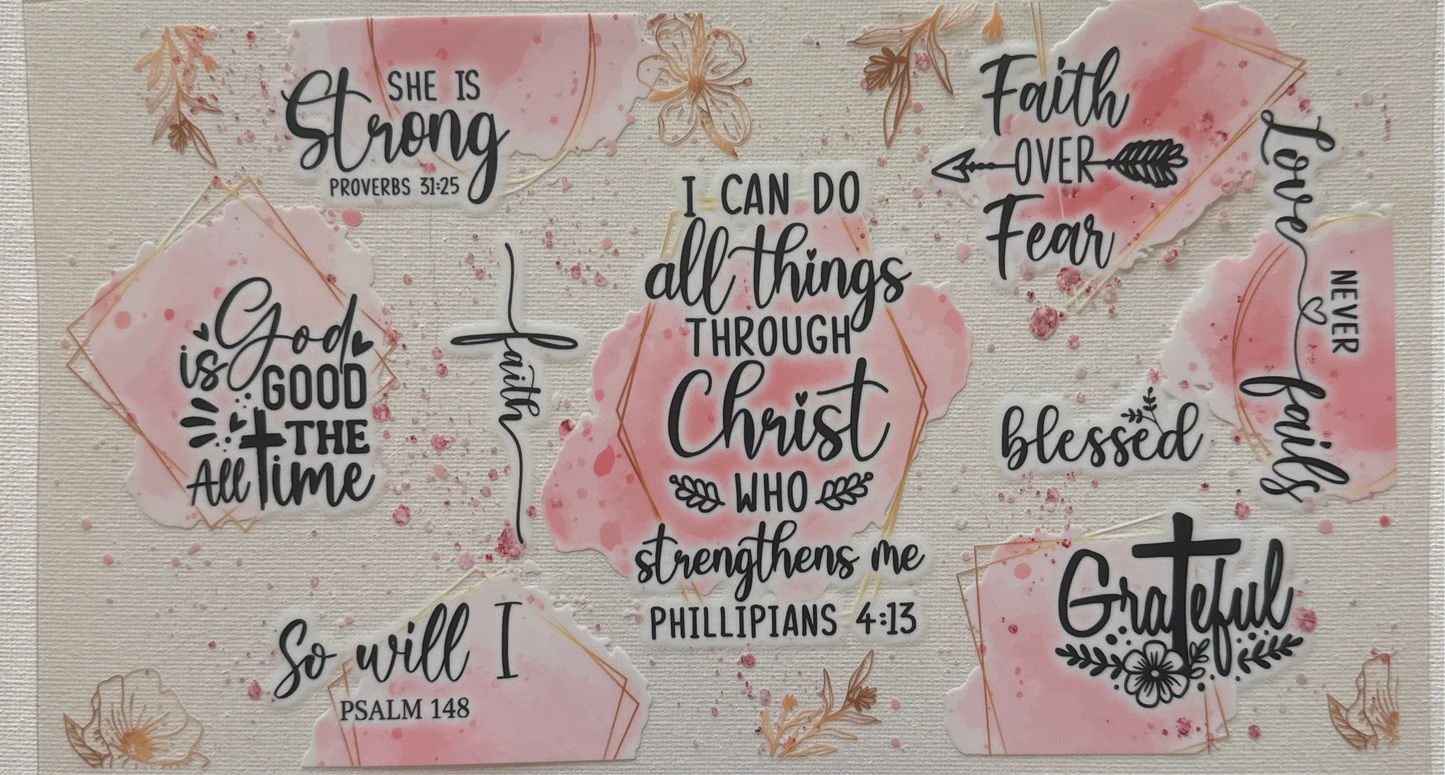 SHE IS
Strong
PROVERBS 31:25
Faith
OVER
Fear
Love
NEVER
fails
I CAN DO
all things
THROUGH
Christ
WHO
strengthens me
PHILLIPIANS 4:13
God
is GOOD
THE
All time
faith
blessed
So will I
PSALM 148
Grateful